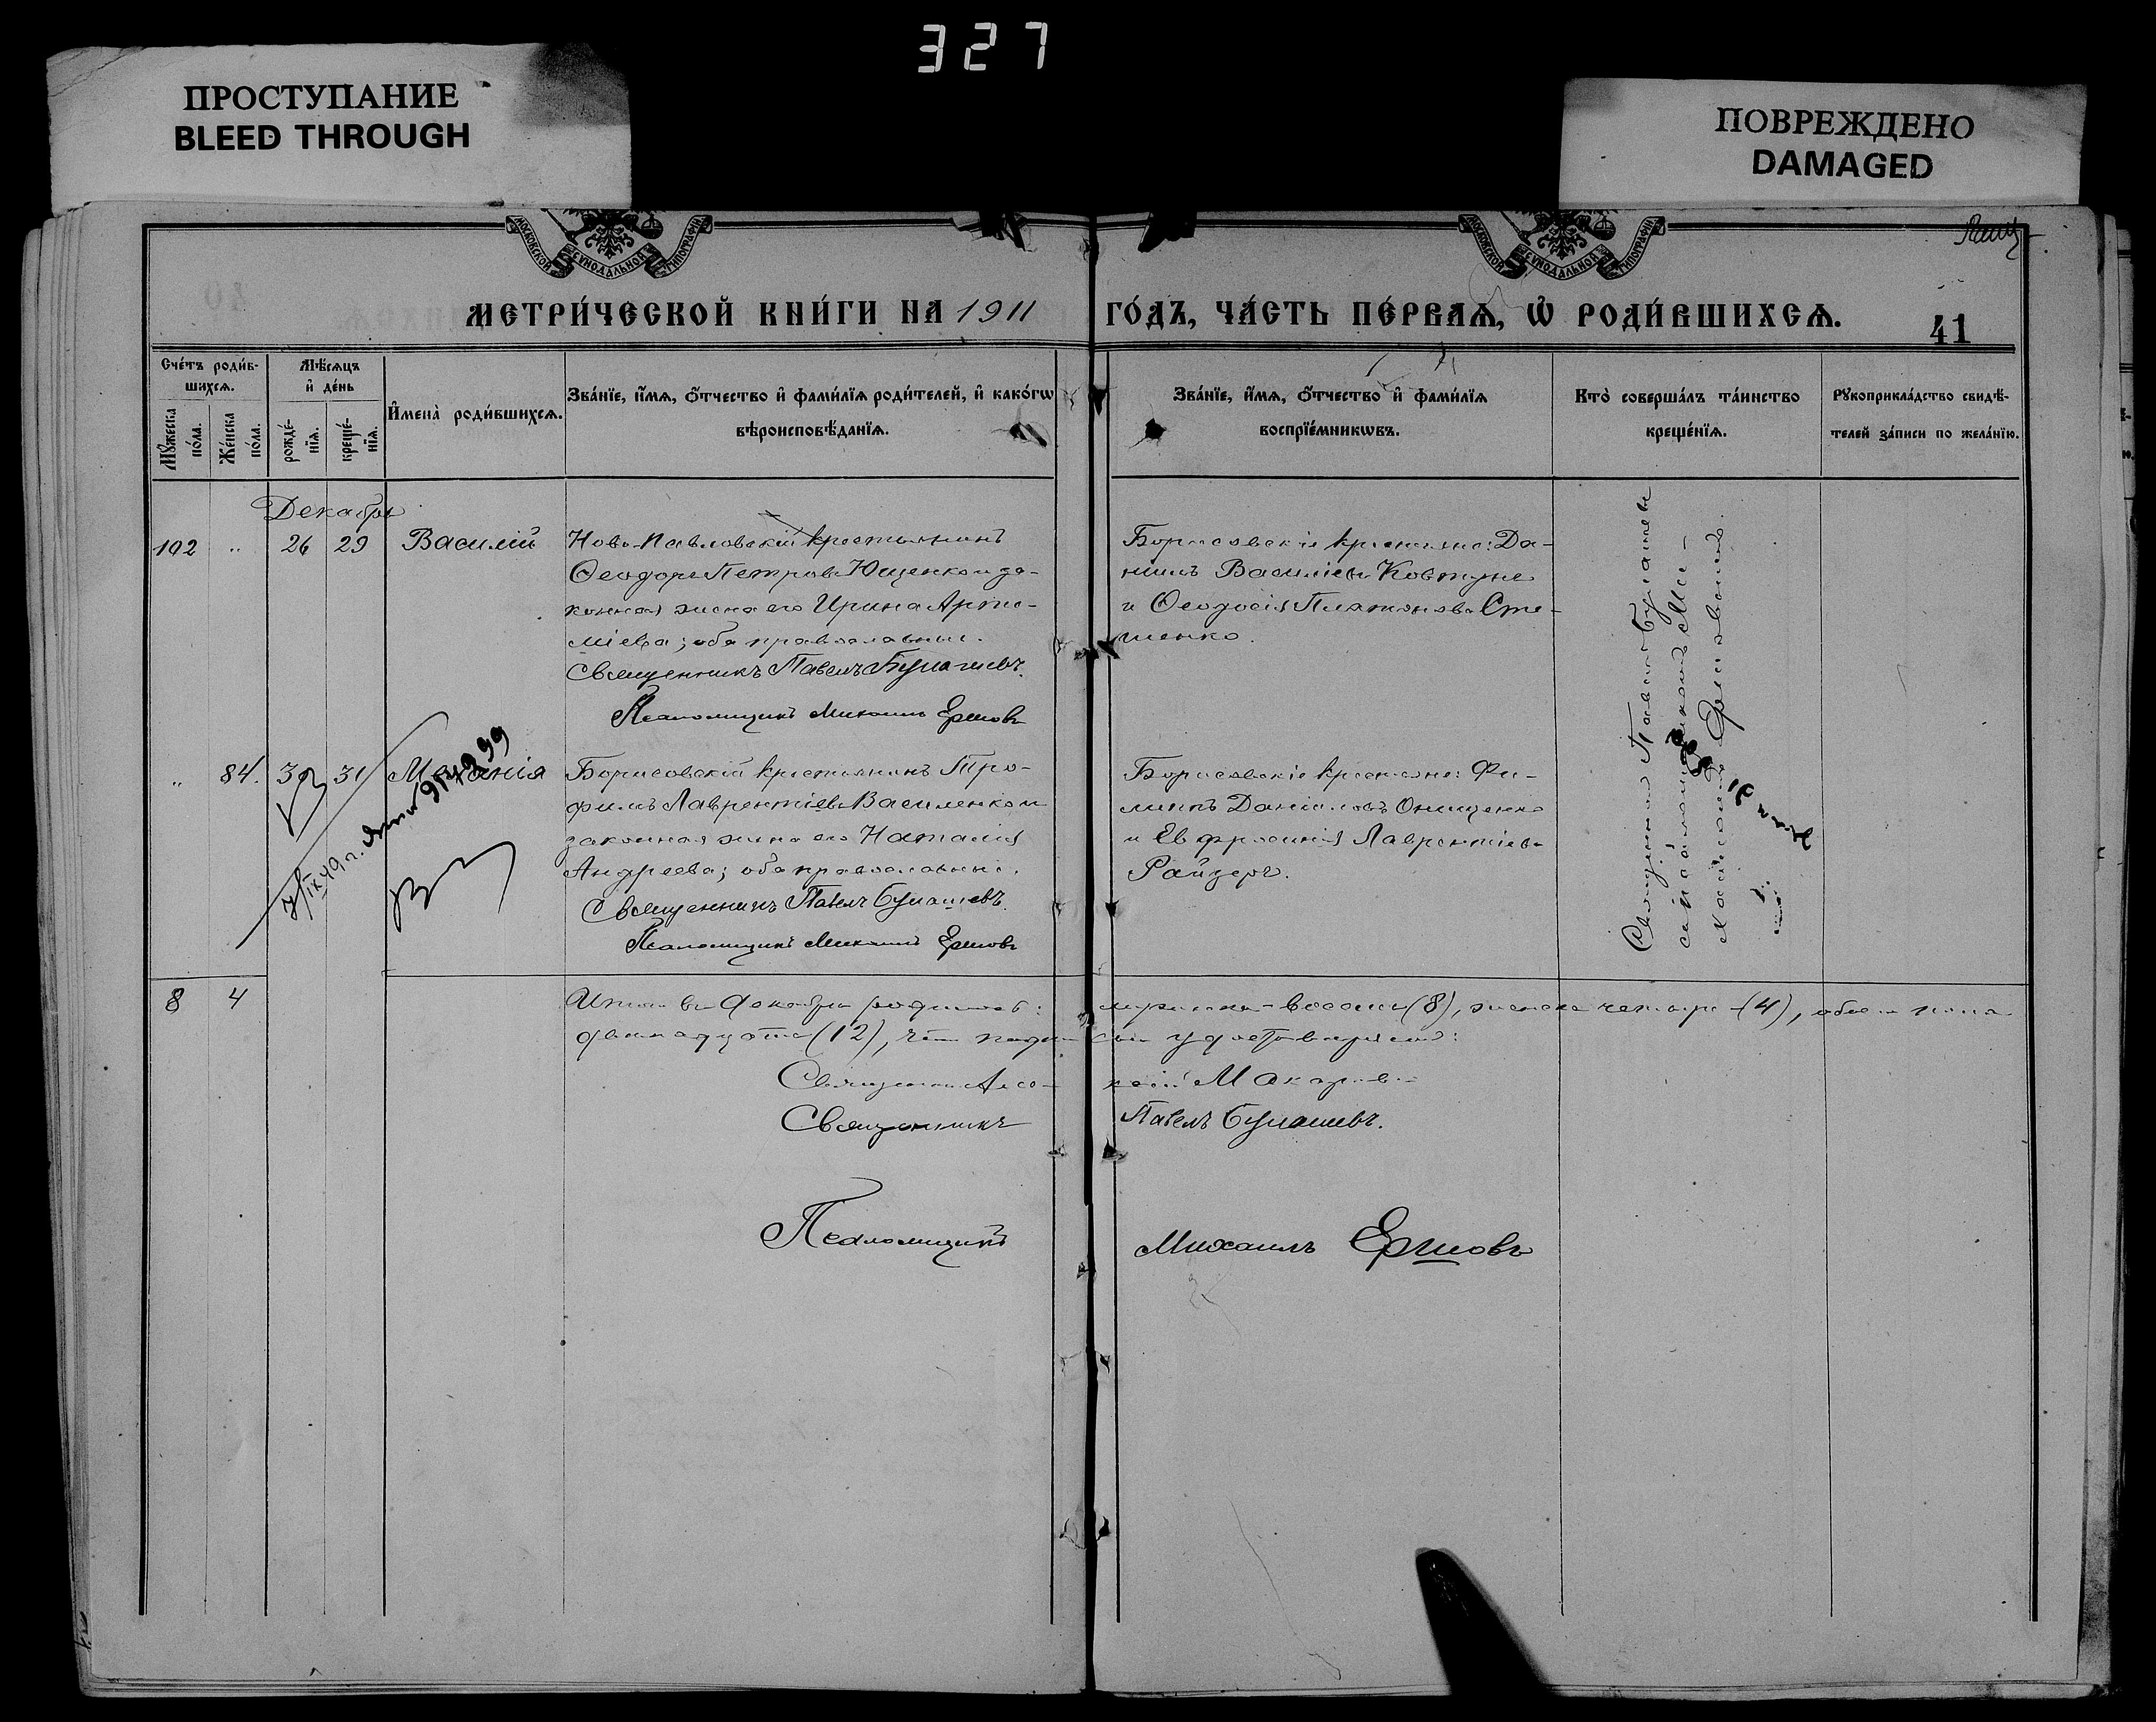 327
ПРОСТУПАНИЕ
BLEED THROUGH
ПОВРЕЖДЕНО
DAMAGED
МОСКОВСКОЙ СѴНОДАЛЬНОЙ ТИПОГРАФІИ
МОСКОВСКОЙ СѴНОДАЛЬНОЙ ТИПОГРАФІИ
МЕТРИ́ЧЕСКОЙ КНИ́ГИ НА 1911 ГО́ДЪ, ЧА́СТЬ ПЕ́РВАѦ, Ѡ҆ РОДИ́ВШИХСѦ.
41
Сче́тъ роди́в-
шихсѧ.
Мꙋ́жеска
по́ла.
Же́нска
по́ла.
Мѣ́сѧцъ
и҆ де́нь
рожде́-
нїѧ.
креще́-
нїѧ.
И҆мена̀ роди́вшихсѧ.
Зва́нїе, и҆́мѧ, ѻ҆́тчество и҆ фами́лїѧ роди́телей, и҆ како́гѡ
вѣроисповѣ́данїѧ.
Зва́нїе, и҆́мѧ, ѻ҆́тчество и҆ фами́лїѧ
воспрїе́мникѡвъ.
Кто̀ соверша́лъ та́инство
креще́нїѧ.
Рꙋкоприкла́дство свидѣ́-
телей за́писи по жела́нїю.
Декабрь
102 " 26 29 Василій
Ново-Павловскій крестьянинъ
Ѳеодоръ Петровъ Ющенко и за-
конная жена его Ирина Арте-
міева; оба православные.
Священникъ Павелъ Булашевъ.
Псаломщикъ Михаилъ Ершовъ
Борисовскіе крестьяне: Да-
ніилъ Василіевъ Ковтунъ
и Ѳеодосія Платонова Сте-
шенко.
Священникъ Павелъ Булашевъ
съ псаломщикомъ Ми-
хаиломъ Ершовымъ.
" 84. 30 31 Меланія
Борисовскій крестьянинъ Тро-
фимъ Лаврентіевъ Василенко и
законная жена его Наталія
Андреева; оба православные.
Священникъ Павелъ Булашевъ.
Псаломщикъ Михаилъ Ершовъ
Борисовскіе крестьяне: Фи-
липпъ Даніиловъ Онищенко
и Евфросинія Лаврентіева
Райзеръ.
8 4
Итого въ декабрѣ родилось: мужеска - восемь (8), женска четыре - (4), обоего пола
двенадцать (12), въ чемъ подписомъ удостовѣряемъ:
Макаровъ
Священникъ Павелъ Булашевъ.
Псаломщикъ Михаилъ Ершовъ